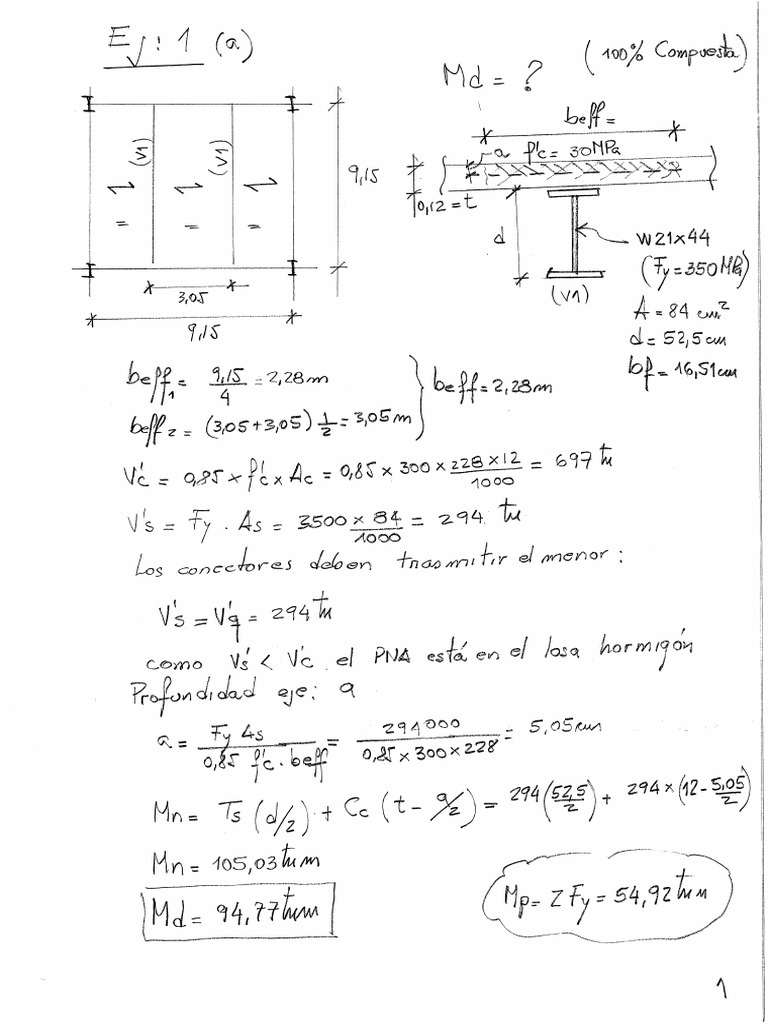 Ej: 1 (a)
Md = ? (100% Compuesta)
beff =
(V1) (V1)
a f'c = 30MPa
9,15
0,12 = t
d
W21x44
(Fy = 350 MPa)
(V1)
A = 84 cm²
d = 52,5 cm
bf = 16,51 cm
3,05
9,15
beff1 = 9,15/4 = 2,28 m
beff2 = (3,05+3,05) 1/2 = 3,05 m } beff = 2,28 m
V'c = 0,85 x f'c x Ac = 0,85 x 300 x 228x12/1000 = 697 tn
V's = Fy . As = 3500 x 84/1000 = 294 tn
Los conectores deben trasmitir el menor:
V's = V'q = 294 tn
como V's < V'c el PNA está en el losa hormigón
Profundidad eje: a
a = Fy As/0,85 f'c . beff = 294000/0,85 x 300 x 228 = 5,05 cm
Mn = Ts (d/2) + Cc (t - a/2) = 294 (52,5/2) + 294 x (12 - 5,05/2)
Mn = 105,03 tn m
Md = 94,77 tnm
Mp = Z Fy = 54,92 tn m
1